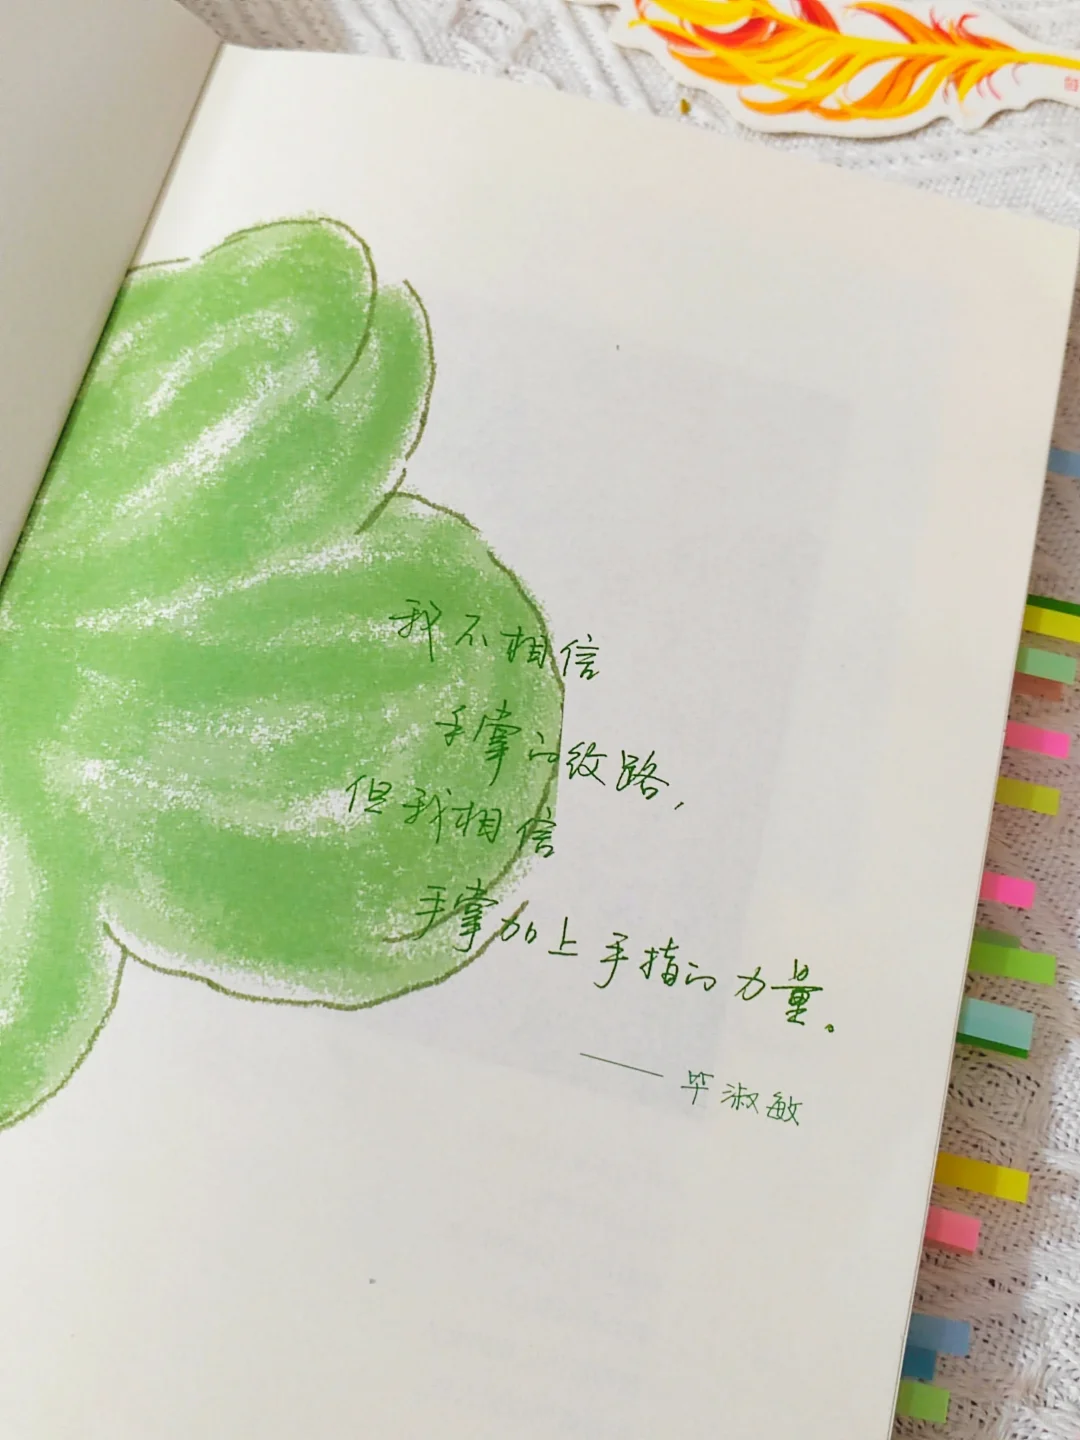 我不相信
手掌的纹路，
但我相信
手掌加上手指的力量。
——毕淑敏